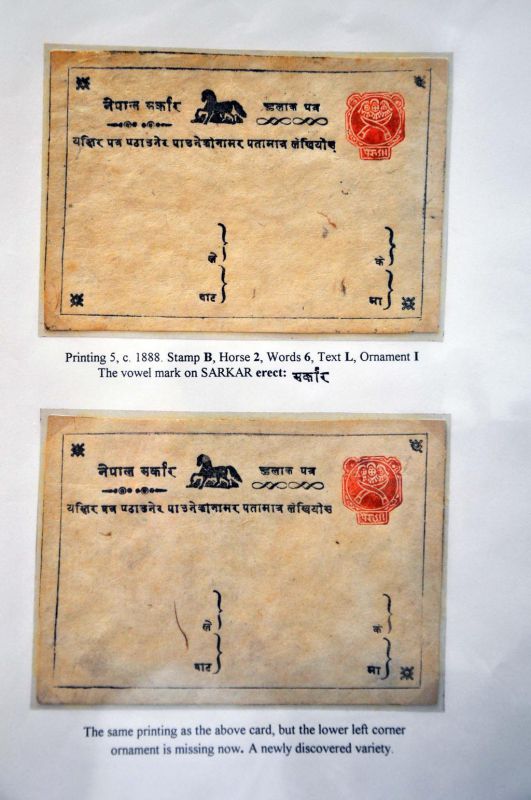 नेपाल सर्कार
ह्लाक पत्र
यद्दिर पत्र पठाउनेर पाउनेकोनामर पतामात्र लेखियोस्
ले
के
बाट
मा
Printing 5, c. 1888. Stamp B, Horse 2, Words 6, Text L, Ornament I
The vowel mark on SARKAR erect: सर्कार
नेपाल सर्कार
ह्लाक पत्र
पत्र पठाउनेर पाउनेकोनामर पतामात्र लेखियोस्
ले
के
बाट
मा
The same printing as the above card, but the lower left corner
ornament is missing now. A newly discovered variety.